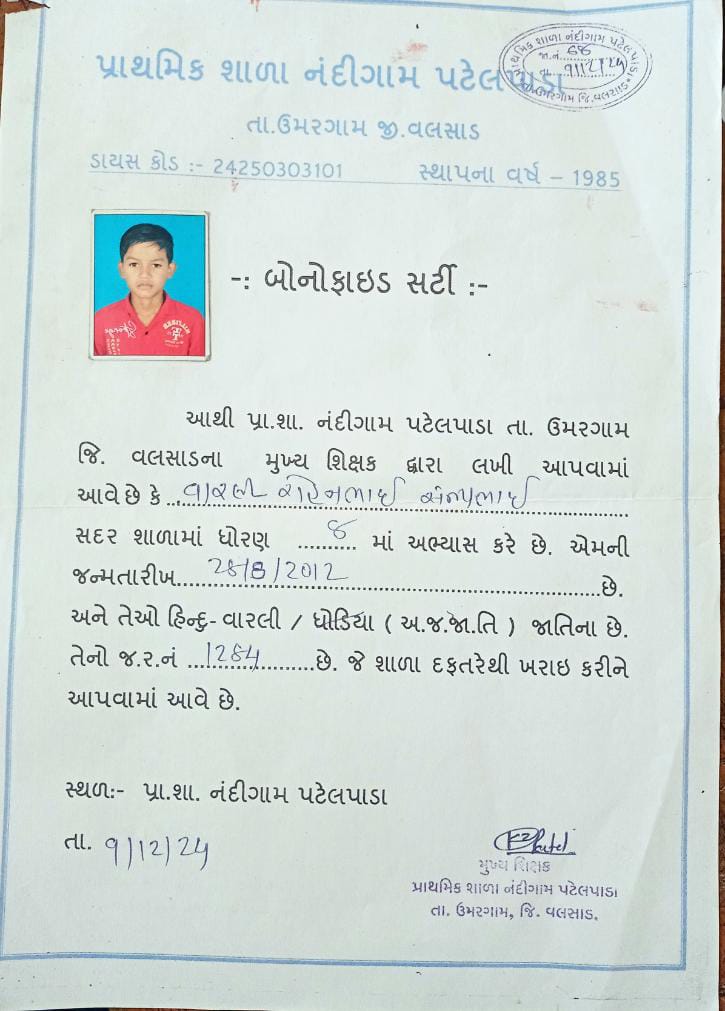 પ્રાથમિક શાળા નંદીગામ પટેલપાડા
પ્રાથમિક શાળા નંદીગામ પટેલપાડા
જા.નં. ૬૪
તા. ૧/૧૨/૨૪
તા.ઉમરગામ જિ.વલસાડ
તા.ઉમરગામ જી.વલસાડ
ડાયસ કોડ :- 24250303101 સ્થાપના વર્ષ – 1985
-: બોનોફાઇડ સર્ટી :-
આથી પ્રા.શા. નંદીગામ પટેલપાડા તા. ઉમરગામ
જિ. વલસાડના મુખ્ય શિક્ષક દ્વારા લખી આપવામાં
આવે છે કે વારલી
સદર શાળામાં ધોરણ ૪ માં અભ્યાસ કરે છે. એમની
જન્મતારીખ 28/8/2012 છે.
અને તેઓ હિન્દુ-વારલી / ધોડિયા ( અ.જ.જા.તિ ) જાતિના છે.
તેનો જ.ર.નં 1284 છે. જે શાળા દફતરેથી ખરાઇ કરીને
આપવામાં આવે છે.
સ્થળ:- પ્રા.શા. નંદીગામ પટેલપાડા
તા. ૧/12/24
મુખ્ય શિક્ષક
પ્રાથમિક શાળા નંદીગામ પટેલપાડા
તા. ઉમરગામ, જિ. વલસાડ.